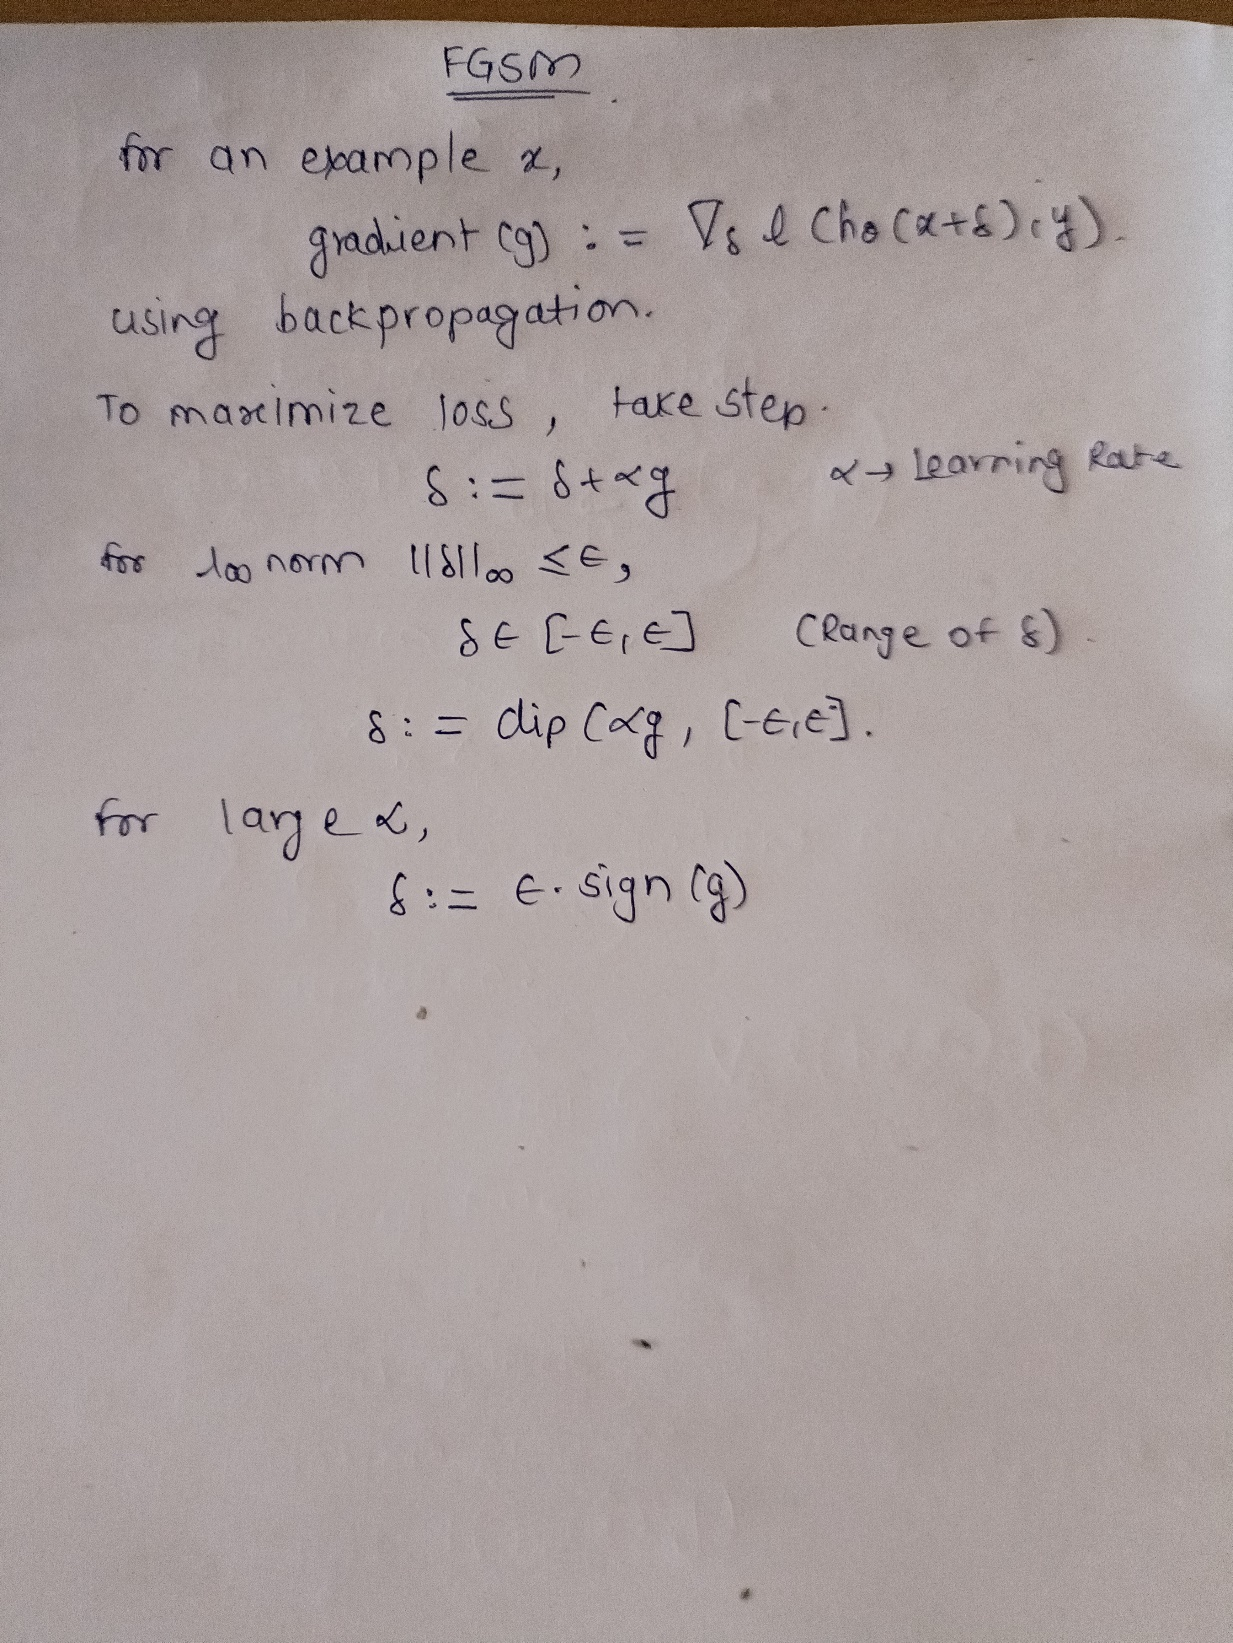 FGSM
for an example x,
gradient (g) := ∇δ l (hθ(x+δ), y).
using backpropagation.
To maximize loss, take step.
δ := δ+αg α→ Learning Rate
for l∞ norm ||δ||∞ ≤ ϵ,
δ ∈ [-ϵ, ϵ] (Range of δ)
δ := clip (αg, [-ϵ, ϵ].
for large α,
δ := ϵ. sign (g)